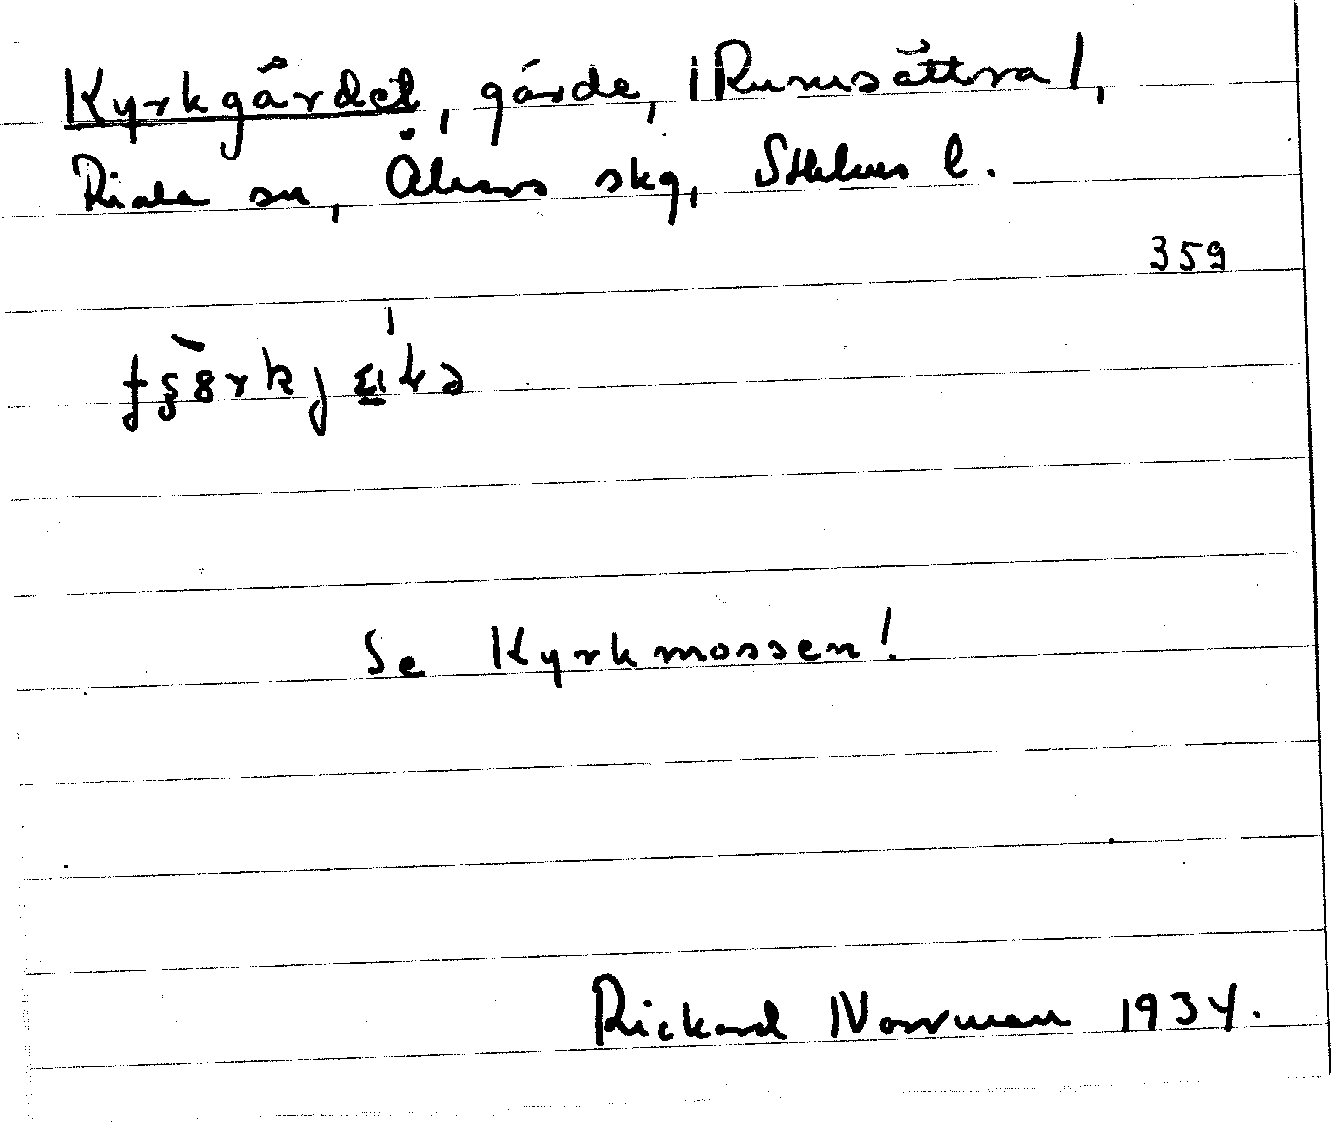 Kyrkgärdet, gärde, /Rumsättra/,
Riala sn, Åkers skg, Sthlms l.
359
Se Kyrkmossen!
Rickard Norrman 1934.